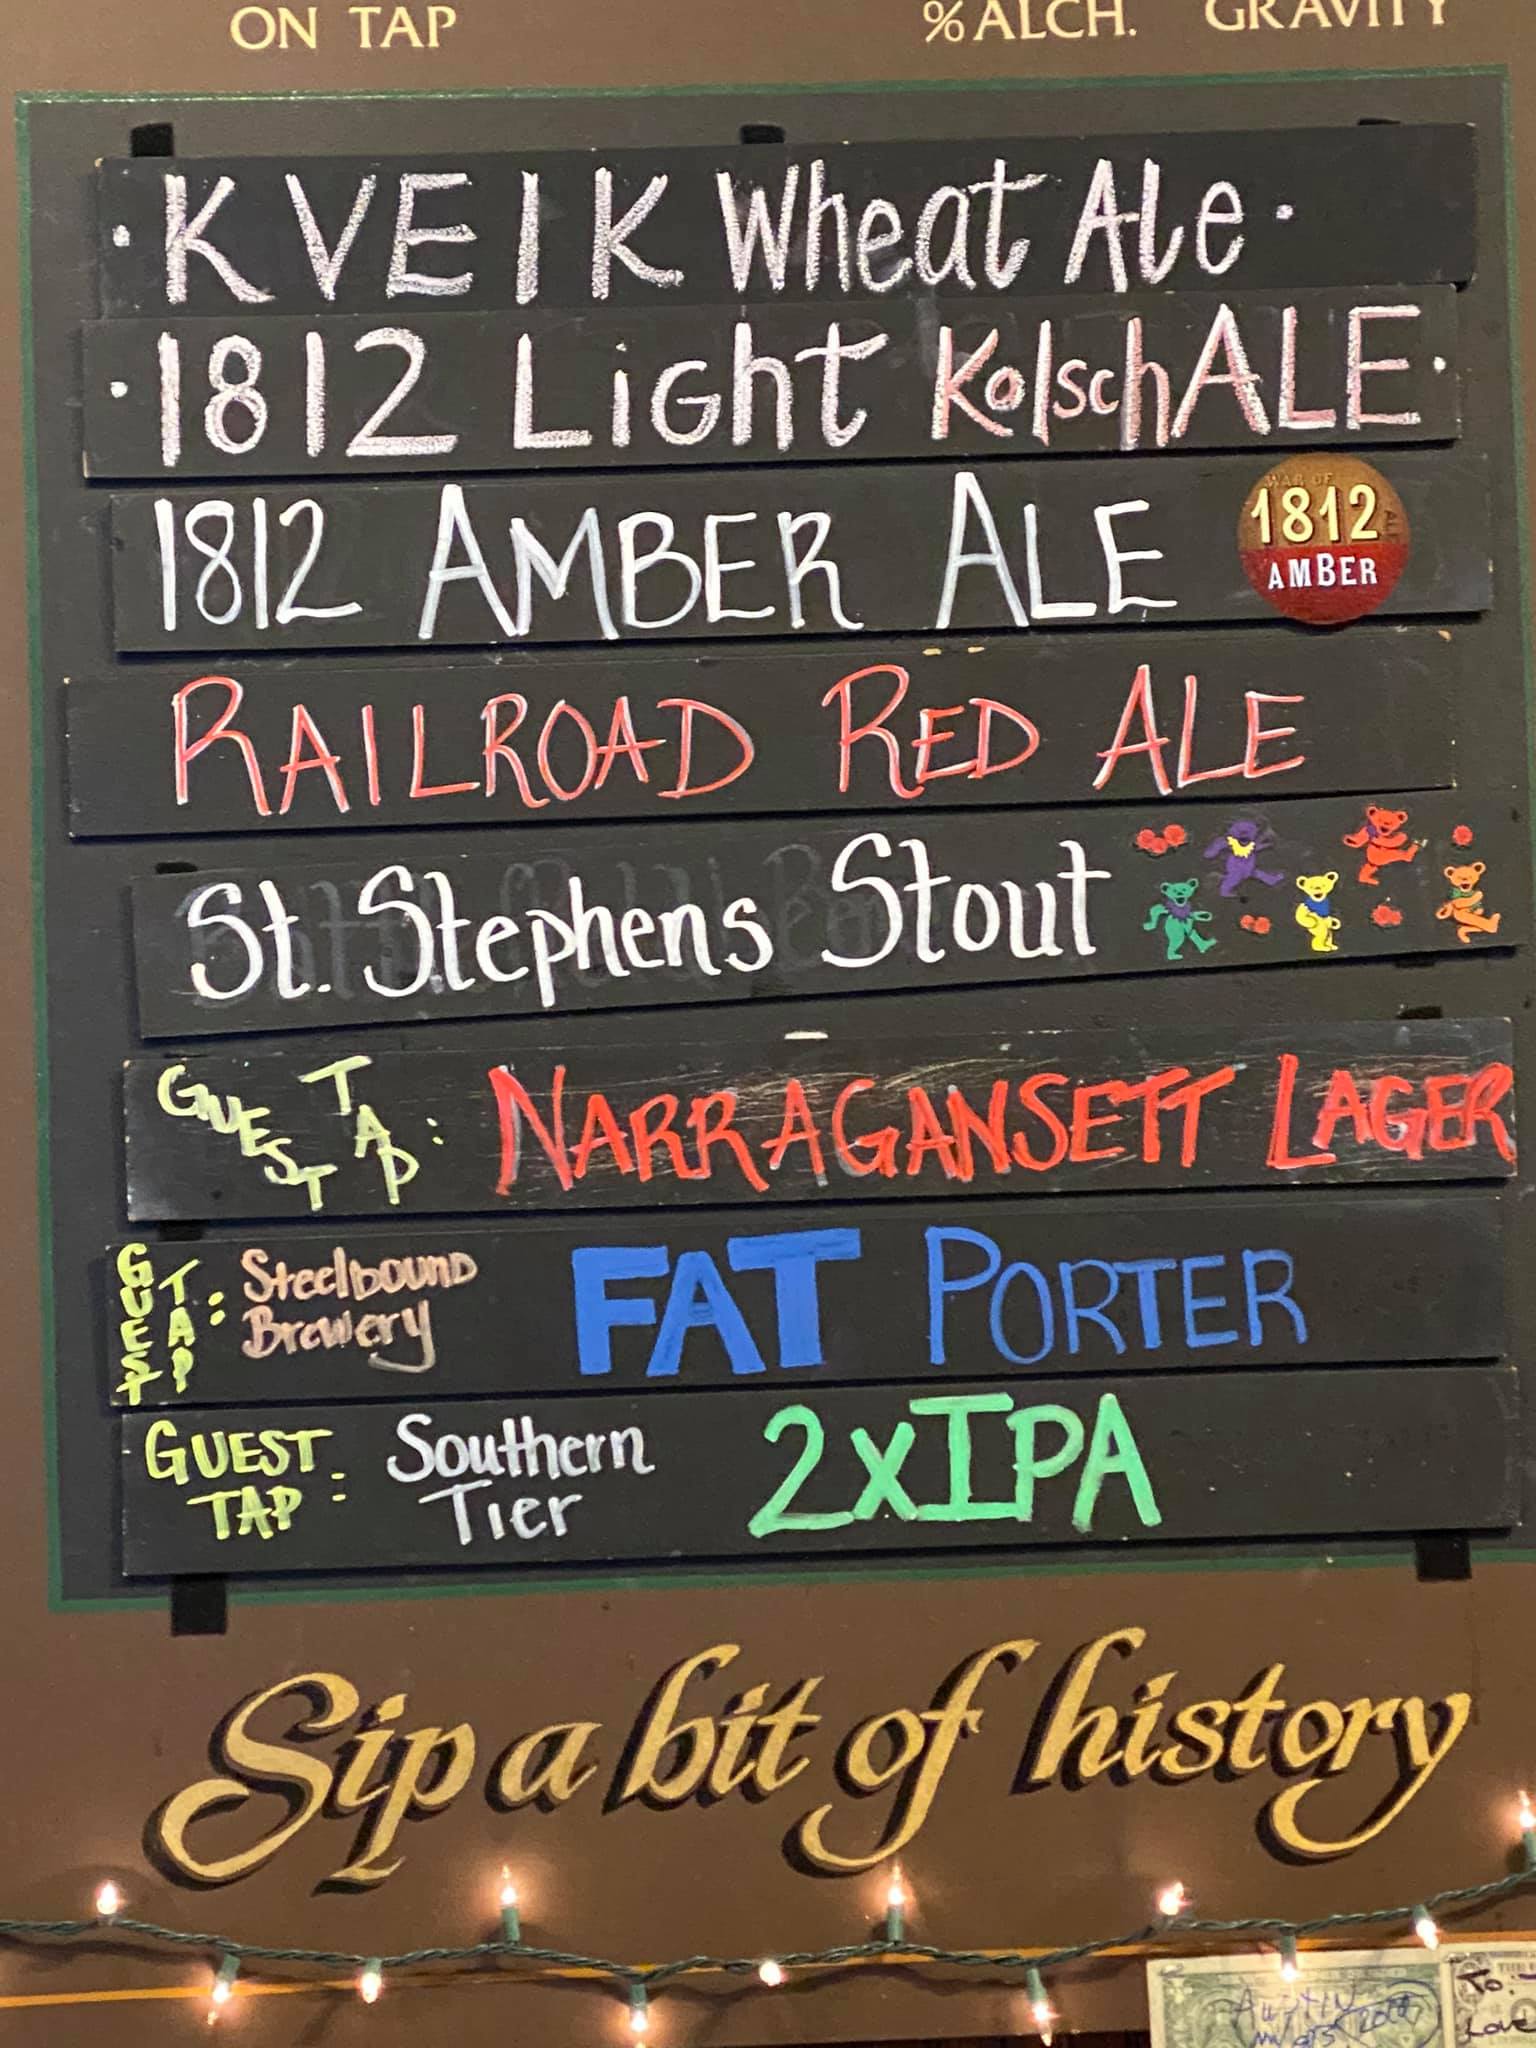 ON TAP %ALCH. GRAVITY
· KVEIK Wheat Ale ·
· 1812 Light Kolsch ALE ·
1812 AMBER ALE
WAR OF
1812
ALE
AMBER
RAILROAD RED ALE
St. Stephens Stout
GUEST TAP: NARRAGANSETT LAGER
GUEST TAP: Steelbound Brewery FAT PORTER
GUEST TAP: Southern Tier 2xIPA
Sip a bit of history
AUSTIN
To:
Love